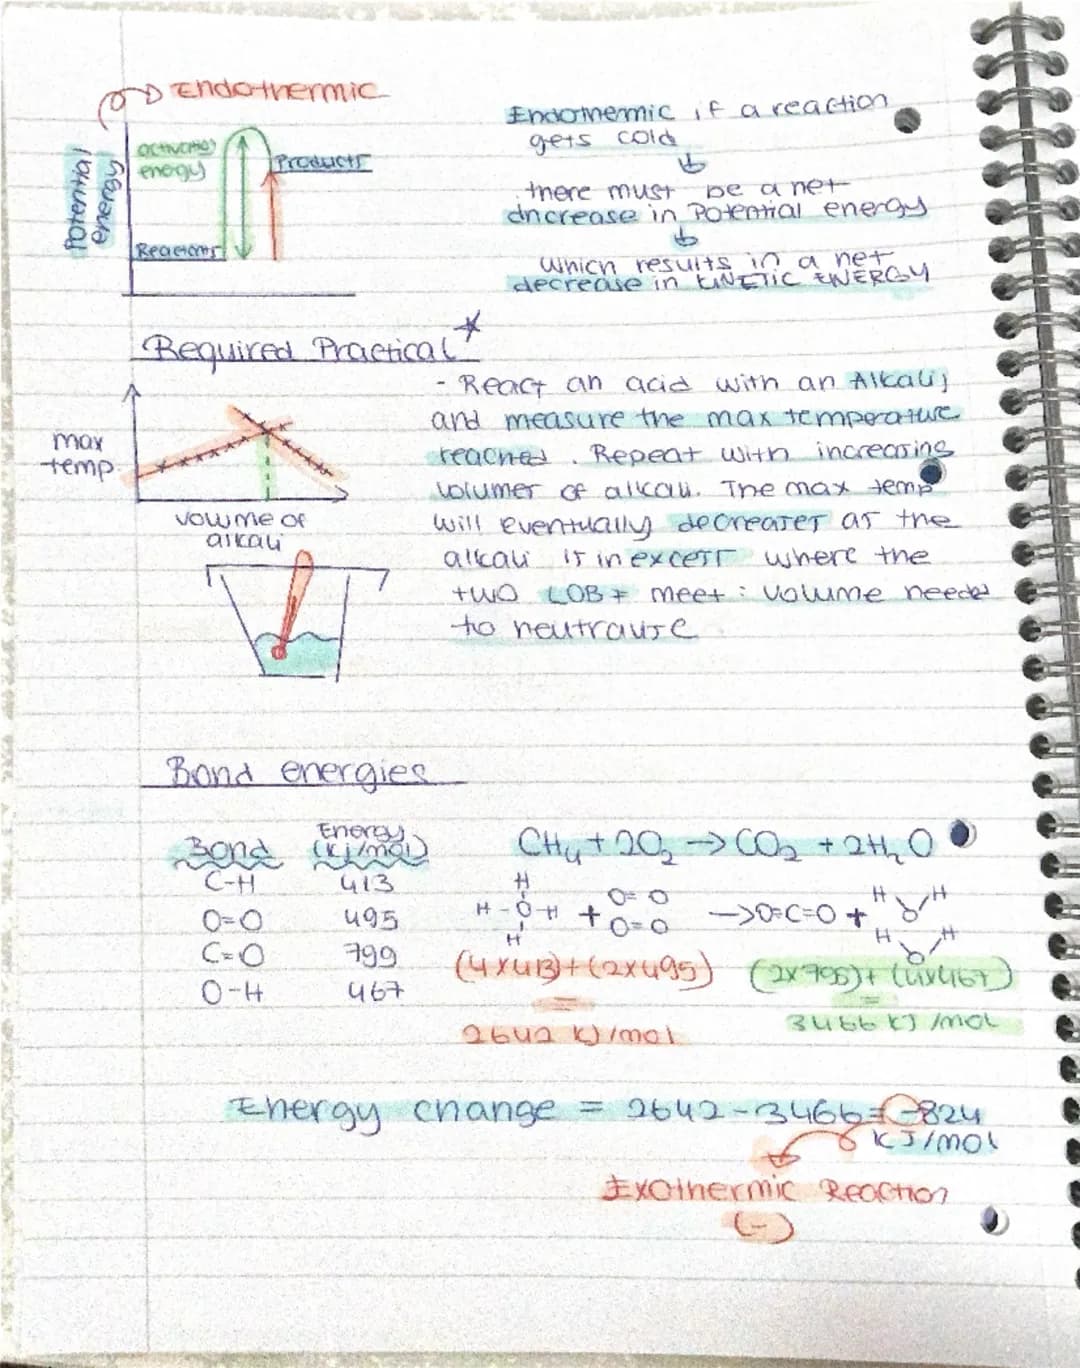 Endothermic
Potential
energy
activation
enegy
Products
Reactants
Endothemic if a reaction
gets cold
there must be a net
increase in Potential energy
which results in a net
decrease in KINETIC ENERGY
Required Practical
- React an acid with an Alkali,
and measure the max temperature
reached. Repeat with increasing
volumes of alkali. The max temp
will eventually decreases as the
alkali is in excess where the
two LOBF meet: volume needed
to neutralise
max
temp
volume of
alkali
Bond energies
Bond Energy (KJ/mol)
C-H 413
O=O 495
C=O 799
O-H 467
CH4 + 2O2 → CO2 + 2H2O
H
H - O - H + O=O → O=C=O + H H
H O=O O
H H
O
(4x413)+(2x495) (2x795)+(4x467)
= =
2642 KJ/mol 3466 KJ/mol
Energy change = 2642-3466=-824
KJ/mol
Exothermic Reaction
(-)